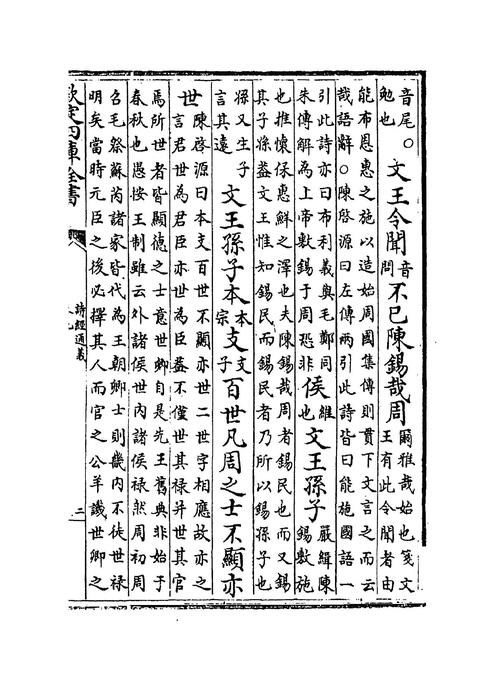 音尾○
勉也
文王令聞音問不已陳錫哉周爾雅哉始也箋文
王有此令聞者由
能布恩惠之施以造始周國集傳則貫下文言之而云
哉語辭○陳啓源曰左傳兩引此詩皆曰能施國語一
引此詩亦曰布利義與毛鄭同
朱傳解為上帝敷錫于周恐非
侯維也文王孫子嚴緝陳
錫敷施
也推懷保惠鮮之澤也夫陳錫哉周者錫民也而又錫
其子孫葢文王惟知錫民而錫民者乃所以錫孫子也
孫又生子
言其遠
文王孫子本本宗支支子百世凡周之士不顯亦
世陳啓源曰本支百世不顯亦世二世字相應故亦之
言君世為君臣亦世為臣葢不僅世其禄并世其官
焉所世者皆顯德之士意世卿自是先王舊典非始于
春秋也愚按王制雖云外諸侯世内諸侯禄然周初周
召毛祭蘇芮諸家皆代為王朝卿士則畿内不徒世禄
明矣當時元臣之後必擇其人而官之公羊譏世卿之
欽定四庫全書
詩經通義
二